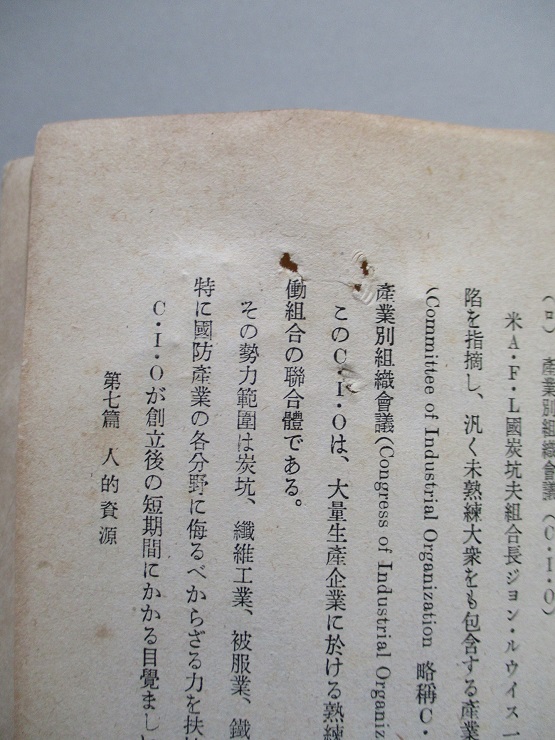 (ロ) 產業別組織會議(C・I・O)
米A・F・L國炭坑夫組合長ジョン・ルウイス一
陷を指摘し、汎く未熟練大衆をも包含する產業
(Committee of Industrial Organization 略稱C・
產業別組織會議(Congress of Industrial Organiz
このC・I・Oは、大量生產企業に於ける熟練
働組合の聯合體である。
その勢力範圍は炭坑、纖維工業、被服業、鐵
特に國防產業の各分野に侮るべからざる力を扶
C・I・Oが創立後の短期間にかかる目覺まし
第七篇 人的資源